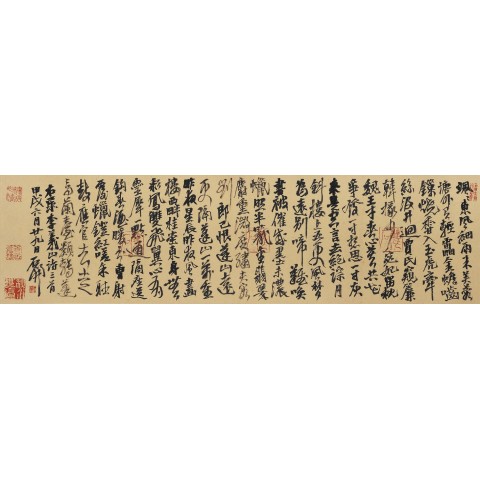 颯颯東風細雨來芙蓉
塘外有輕雷金蟾嚙
鎖燒香入玉虎牽
絲汲井回賈氏窺簾
韓掾少宓妃留枕
魏王才春心莫共花
爭發一寸相思一寸灰
來是空言去絕蹤月
斜樓上五更夢
為遠別啼難喚
書被催成墨未濃
蠟照半籠金翡翠
麝熏微度繡芙蓉
劉郎已恨蓬山遠
更隔蓬山一萬重
昨夜星辰昨夜風畫
樓西畔桂堂東身無
彩鳳雙飛翼心有
靈犀一點通隔座送
鉤春酒暖分曹射
覆蠟燈紅嗟余聽
鼓應官去走馬
蘭臺類轉蓬
李義山詩三首
甲戌六月廿九日